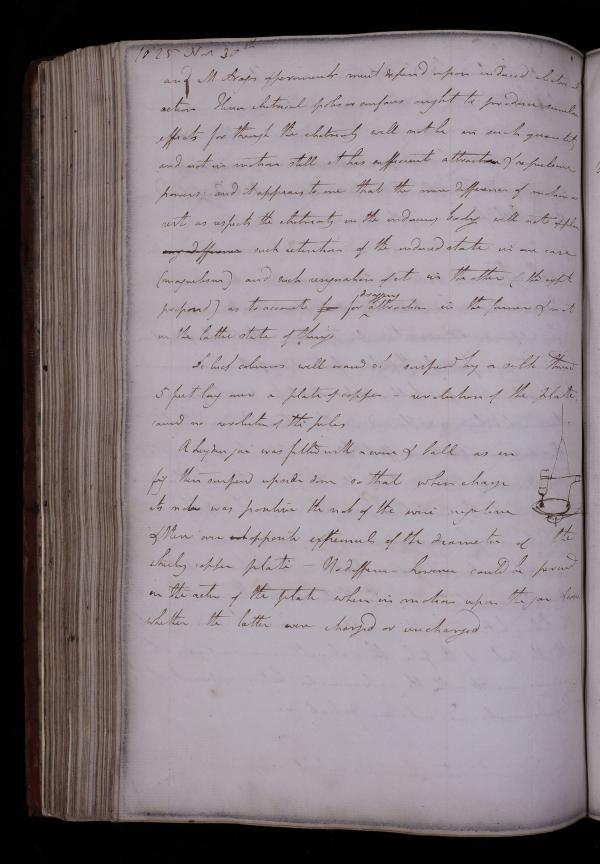 1825 Nov 30th
and M Arago's experiments must depend upon induced electrical
action. Then electrical poles or surfaces ought to produce similar
effects for though the electricity will not be in such quantity
and not in motion still it has sufficient attractive & repulsive
powers: and it appears to me that the mere difference of motion or
rest as respects the electricity in the inducing body will not explain
any difference such retention of the induced state in one case
(magnetism) and such resignation of it in the other (the expt
proposed) as to account for for dragging attraction in the former & not
in the latter state of things
5 feet long over a plate of copper - revolution of the plate
caused no revolution of the poles
A Leyden jar was fitted with a wire & ball as in
fig then suspend upside down so that when charge
its nob was positive the nob of the wire negative
& these over opposite extremities of the diameter of the
whirling copper plate - No difference however could be found
in the action of the plate when in motion upon the jar & wire
whether the latter were charged or uncharged